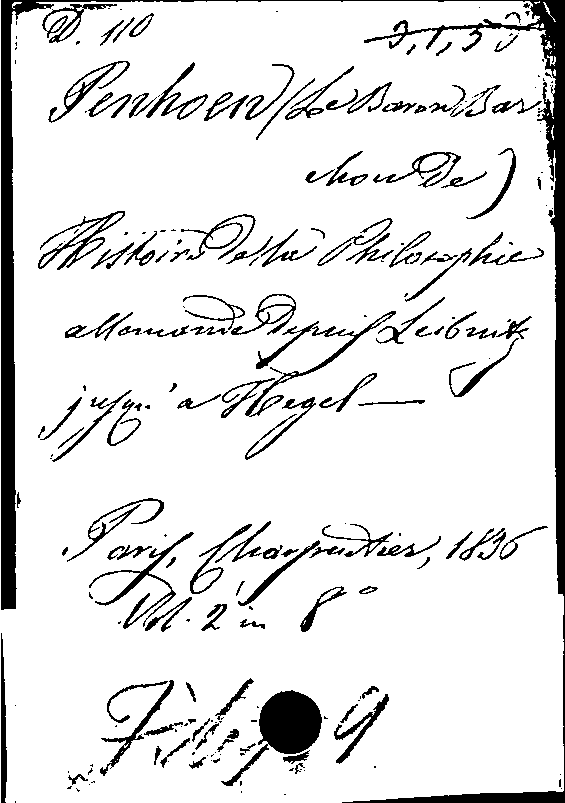 D. 110
Penhoen (Le Baron Bar
chou De)
Histoire De la Philosophie
allemande Depuis Leibnitz
jusqu'a Hegel —
Paris, Charpentier, 1836
Vol. 2 in 8°
9